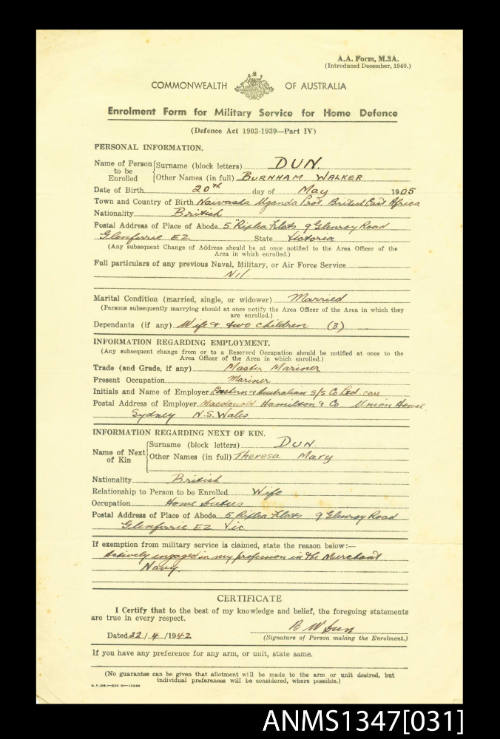 A.A. Form, M.2A.
(Introduced December, 1940.)
COMMONWEALTH OF AUSTRALIA
Enrolment Form for Military Service for Home Defence
(Defence Act 1903-1939—Part IV)
PERSONAL INFORMATION.
Name of Person to be Enrolled
Surname (block letters) DUN
Other Names (in full) BURNHAM WALKER
Date of Birth 20th day of May 1905
Town and Country of Birth Uganda Prot. British East Africa
Nationality British
Postal Address of Place of Abode 5 Riplea Flats 9 Glenroy Road
Glenferrie E2 State Victoria
(Any subsequent Change of Address should be at once notified to the Area Officer of the
Area in which enrolled.)
Full particulars of any previous Naval, Military, or Air Force Service
Nil
Marital Condition (married, single, or widower) Married
(Persons subsequently marrying should at once notify the Area Officer of the Area in which they
are enrolled.)
Dependants (if any) Wife & two children (3)
INFORMATION REGARDING EMPLOYMENT.
(Any subsequent change from or to a Reserved Occupation should be notified at once to the
Area Officer of the Area in which enrolled.)
Trade (and Grade, if any) Master Mariner
Present Occupation Mariner
Initials and Name of Employer Eastern & Australian S/S Co Ltd. care
Postal Address of Employer Macdonald Hamilton & Co Union House
Sydney N.S. Wales
INFORMATION REGARDING NEXT OF KIN.
Name of Next of Kin
Surname (block letters) DUN
Other Names (in full) Theresa Mary
Nationality British
Relationship to Person to be Enrolled Wife
Occupation Home Duties
Postal Address of Place of Abode 5 Riplea Flats 9 Glenroy Road
Glenferrie E2 Vic
If exemption from military service is claimed, state the reason below:—
Actively engaged in my profession in the Merchant
Navy
CERTIFICATE
I Certify that to the best of my knowledge and belief, the foregoing statements
are true in every respect.
B W Dun
Dated 22/4/1942 (Signature of Person making the Enrolment.)
If you have any preference for any arm, or unit, state same.
(No guarantee can be given that allotment will be made to the arm or unit desired, but
individual preferences will be considered, where possible.)
ANMS1347[031]